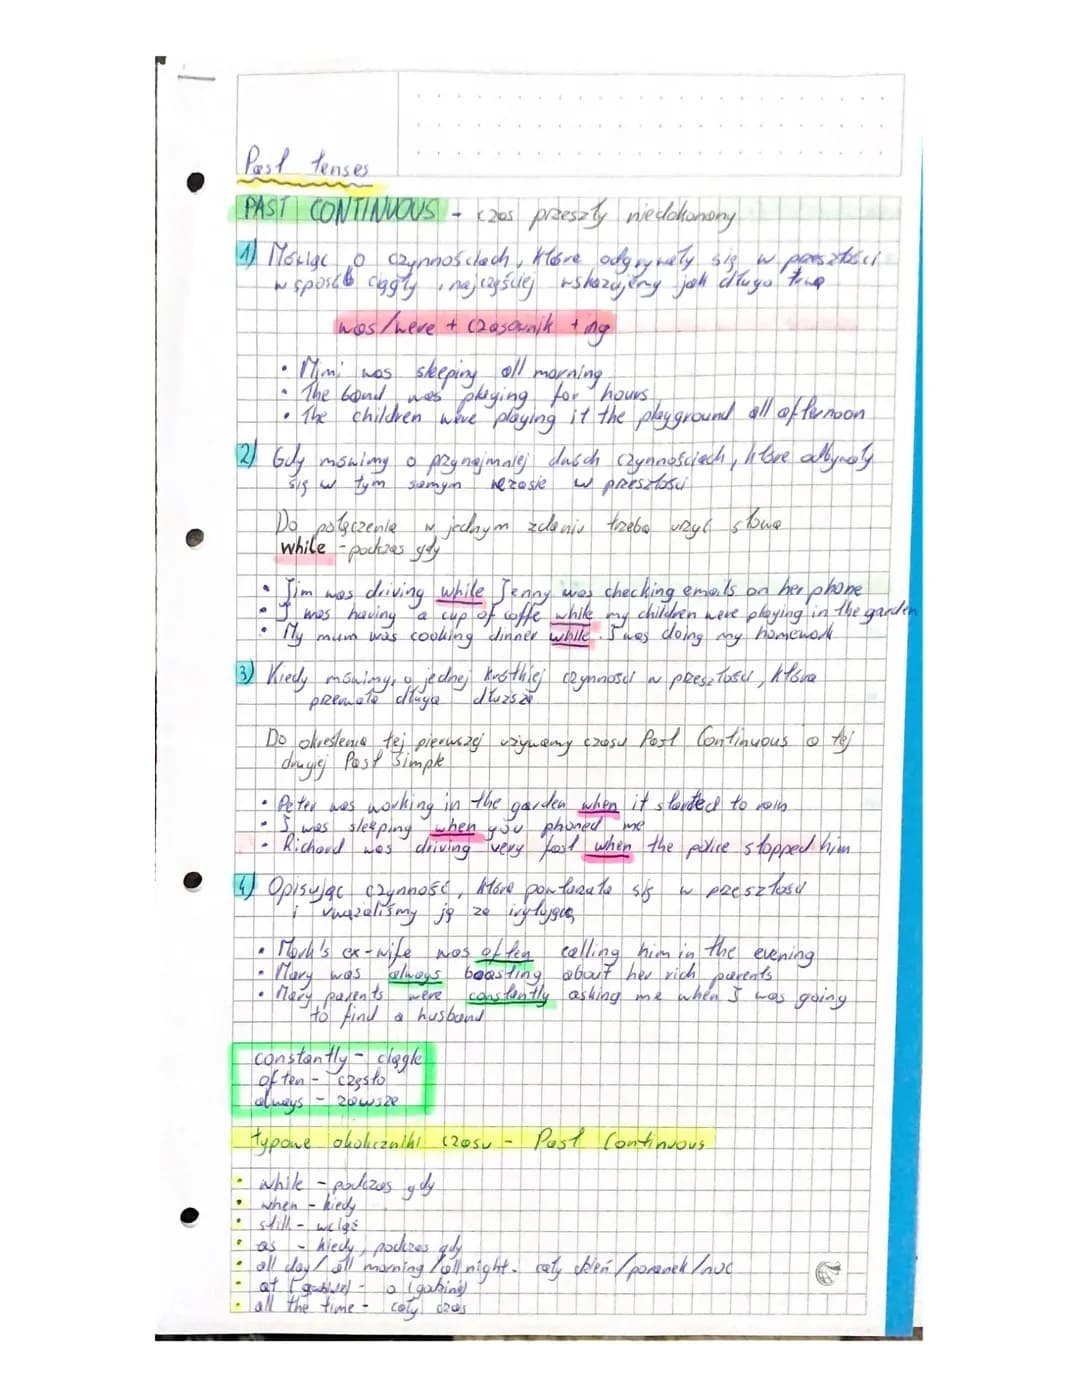 Past tenses
PAST CONTINUOUS - czas przeszły niedokonany
1) Mówiąc o czynnościach, które odgrywały się w przeszłości
w sposób ciągły, najczęściej wskazujemy jak długo trwa
was/were + czasownik + ing
• Mimi was sleeping all morning
• The band was playing for hours
• The children were playing it the playground all afternoon
2) Gdy mówimy o przynajmniej dwóch czynnościach, które odbywały
się w tym samym czasie w przeszłości
Do połączenia w jednym zdaniu trzeba użyć słowa
while - podczas gdy
• Jim was driving while Jenny was checking emails on her phone
• I was having a cup of coffe while my children were playing in the garden
• My mum was cooking dinner while I was doing my homework
3) Kiedy mówimy o jednej krótkiej czynności w przeszłości, która
przerwała długą dłuższą
Do określenia tej pierwszej używamy czasu Past Continuous a tej
drugiej Past Simple
• Peter was working in the garden when it started to rain
• I was sleeping when you phoned me
• Richard was driving very fast when the police stopped him
4) Opisując czynność, które powtarzała się w przeszłości
i uważaliśmy ją za irytującą
• Mark's ex-wife was often calling him in the evening
• Mary was always boasting about her rich parents
• Mary parents were constantly asking me when I was going
to find a husband
constantly - ciągle
often - często
always - zawsze
typowe okoliczniki czasu - Past Continuous
• while - podczas gdy
• when - kiedy
• still - wciąż
• as - kiedy, podczas gdy
• all day / all morning / all night - cały dzień / poranek / noc
• at (godzina) - o (godzinie)
• all the time - cały czas